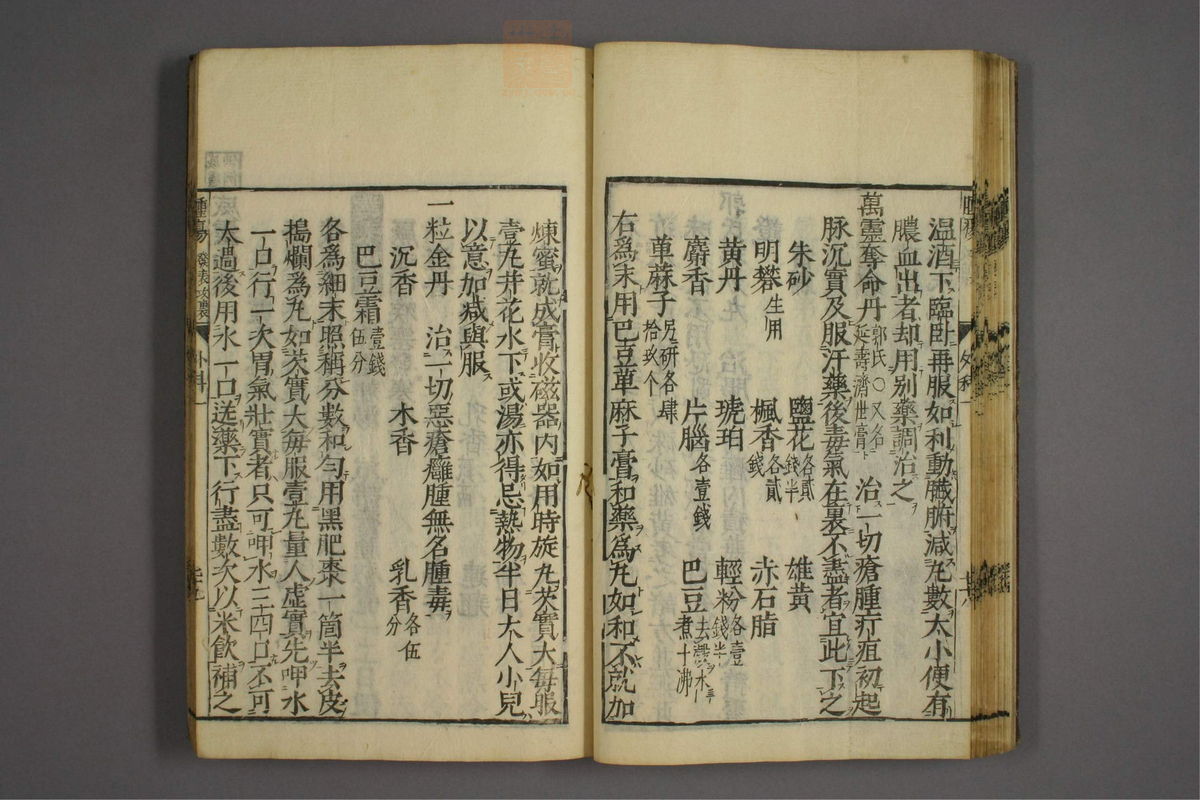 温酒下臨臥再服如利動臟腑減丸數大小便有
膿血出者却用別藥調治之
萬靈奪命丹郭氏〇又名延壽濟世膏治一切瘡腫疔疽初起
脉沉實及服汗藥後毒氣在裏不盡者宜此下之
朱砂 鹽花各貳錢半 雄黃
明礬生用 楓香各貳錢 赤石脂
黃丹 琥珀 輕粉各壹錢半
麝香 片腦各壹錢 巴豆去殼水煮十沸
萆蔴子另研各肆拾玖个
右為末用巴荳萆麻子膏和藥為丸如和不就加
煉蜜就成膏收磁器內如用時旋丸芡實大每服
壹丸井花水下或湯亦得忌熱物半日大人小兒
以意加減與服
一粒金丹 治一切惡瘡癰腫無名腫毒
沉香 木香 乳香各伍分
巴豆霜壹錢伍分
各為細末照稱分數和勻用黑肥棗一箇半去皮
搗爛為丸如芡實大每服壹丸量人虛實先呷水
一口行一次胃氣壯實者只可呷水三四口不可
太過後用水一口送藥下行盡數次以米飲補之
腫瘍 發表攻裏 外科